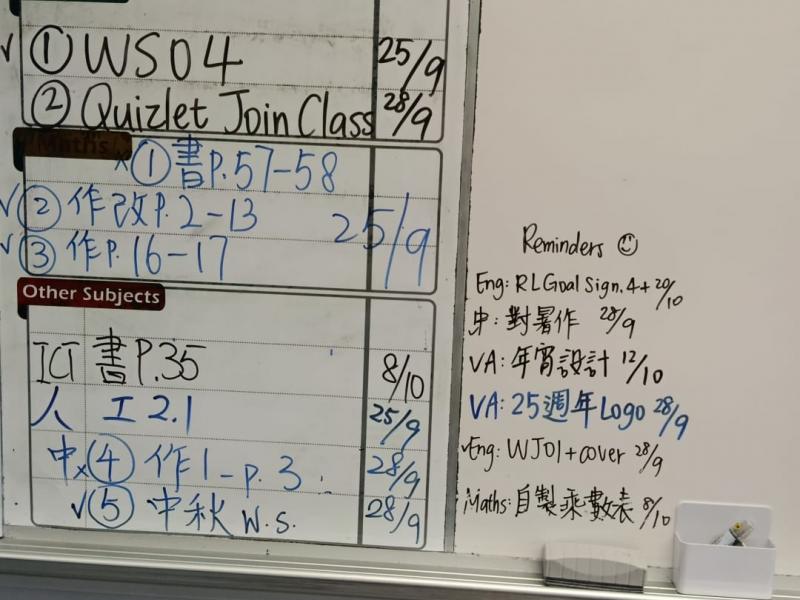 ✓ ① WS04 25/9
② Quizlet Join Class 28/9
Maths
× ① 書P.57-58
✓ ② 作改P.2-13 25/9
✓ ③ 作P.16-17
Other Subjects
ICT 書P.35 8/10
人 工2.1 25/9
中× ④ 作1-p.3 28/9
✓ ⑤ 中秋 W.S. 28/9
Reminders ☺
Eng: RL Goal Sign. 4+ 20/10
中: 對暑作 28/9
VA: 年宵設計 12/10
VA: 25週年Logo 28/9
✓Eng: WJ01+cover 28/9
Maths: 自製乘數表 8/10